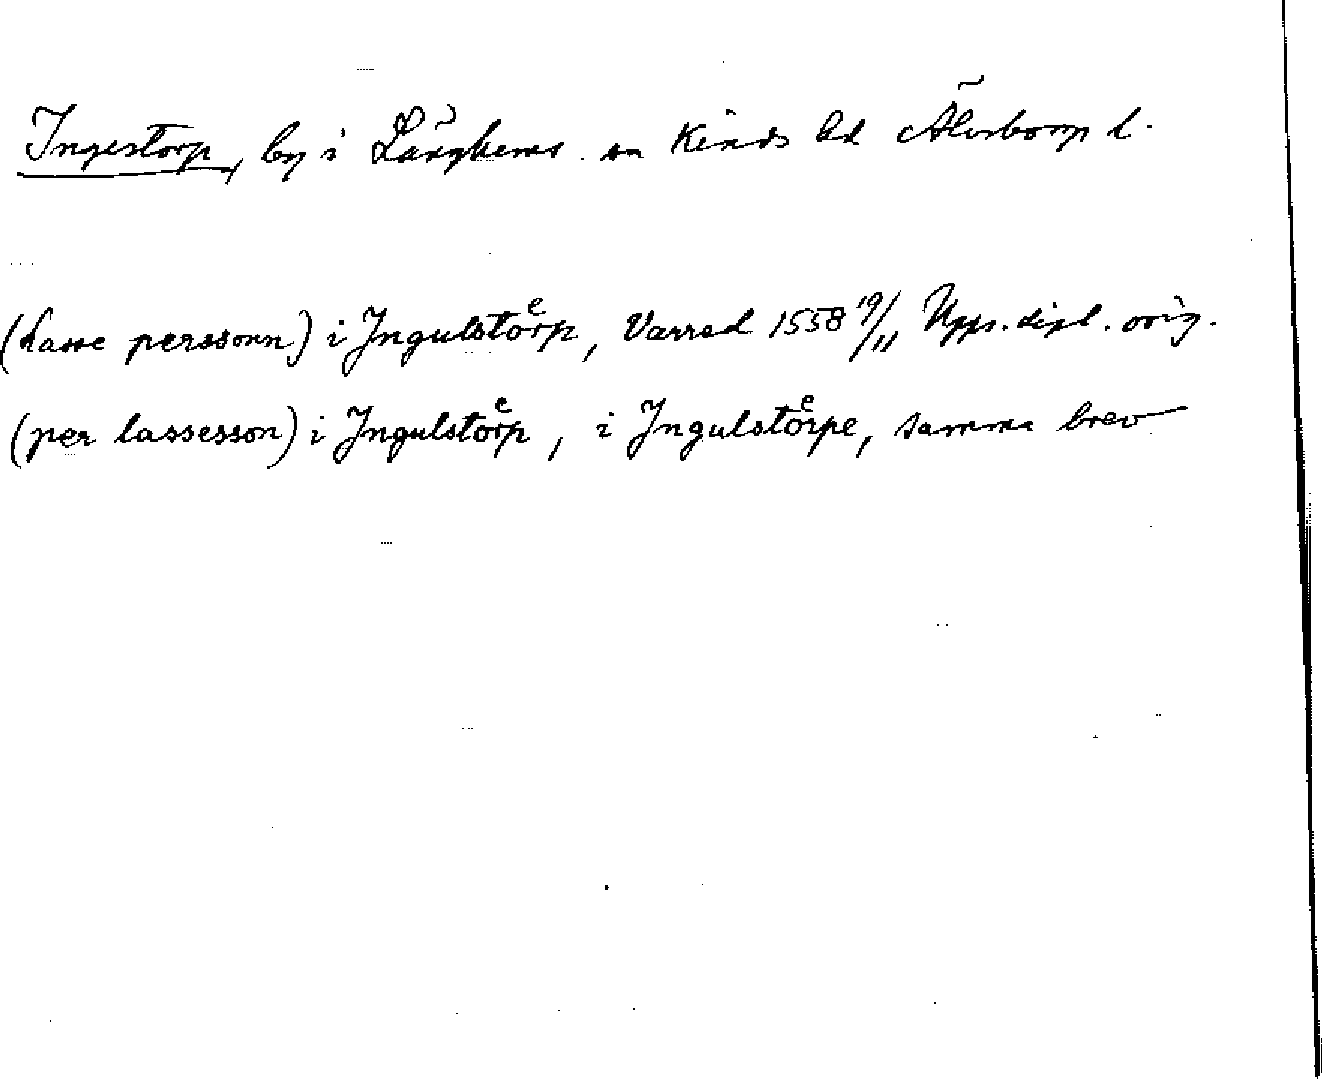 Ingestorp, by i Länghems sn Kinds hd Älvsborgs l.
(Lasse perssonn) i Ingulstoͤrp, Varred 1558 19/11 Upps. dipl. orig.
(per lassesson) i Ingulstoͤrp, i Ingulstoͤrpe, samma brev